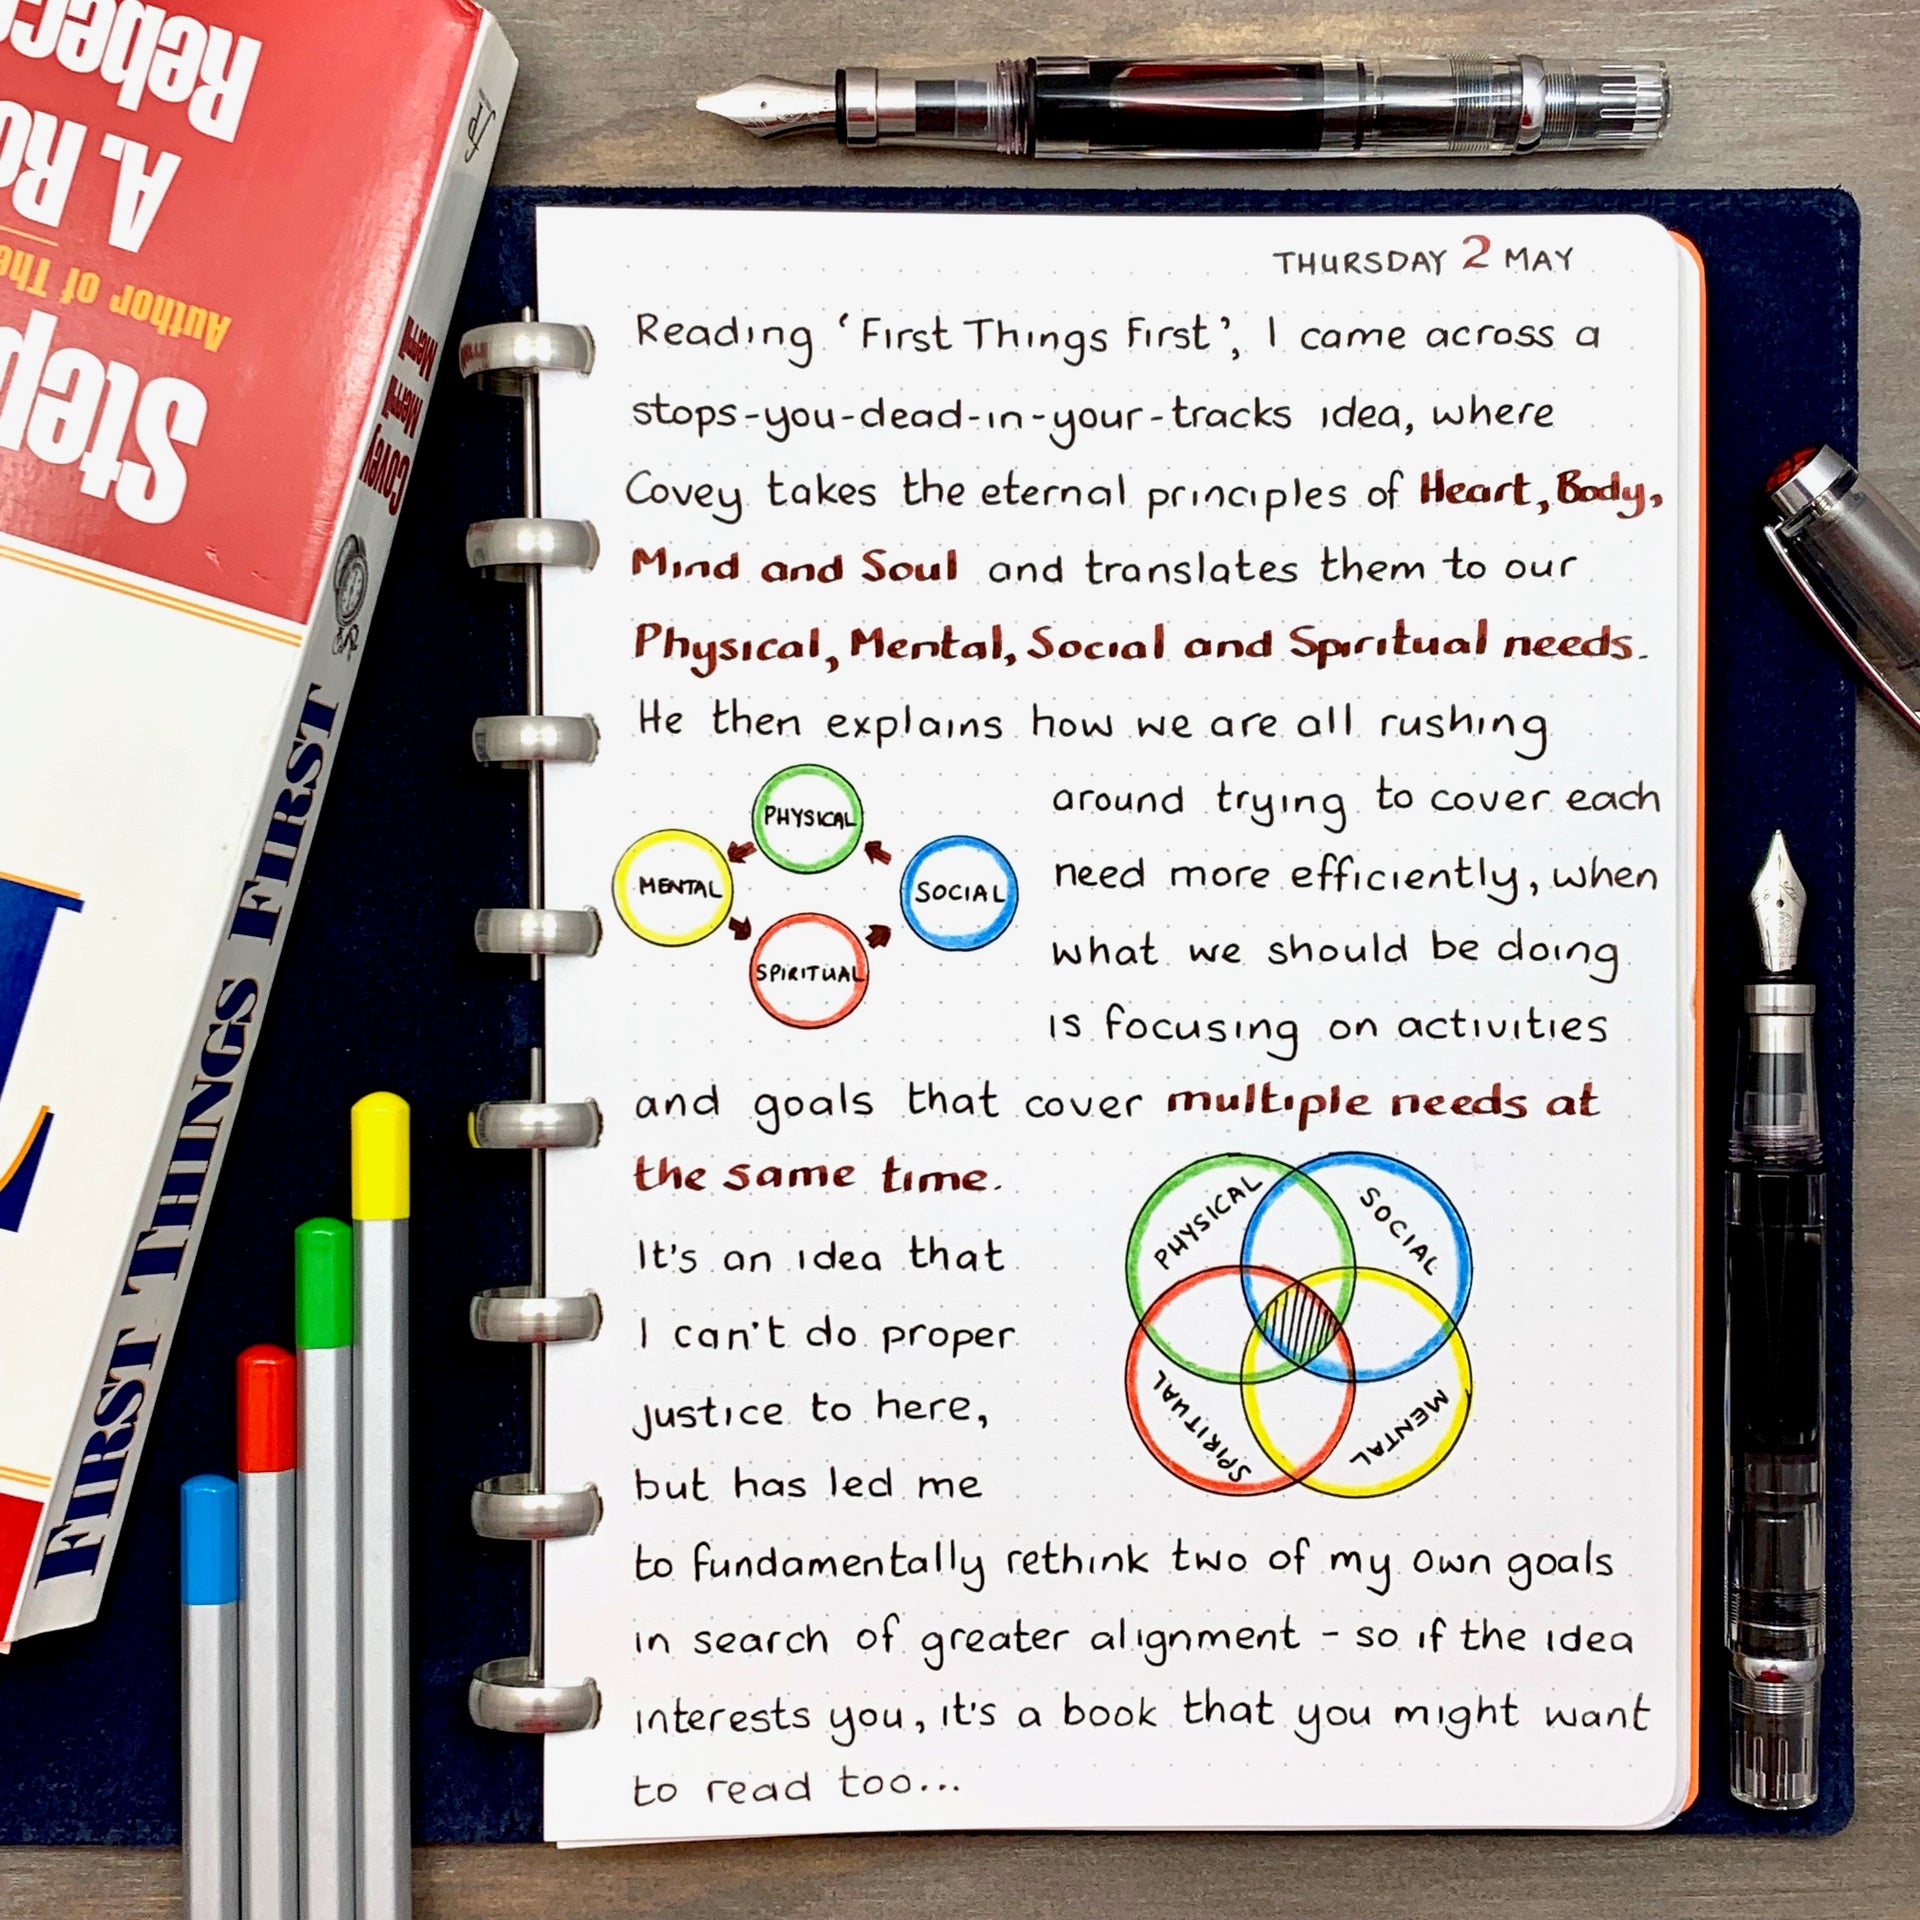 Rebec
A. Ro
Author of The
Step
Covey Merrill Merrill
FIRST THINGS FIRST
THURSDAY 2 MAY
Reading ‘First Things First’, I came across a
stops-you-dead-in-your-tracks idea, where
Covey takes the eternal principles of Heart, Body,
Mind and Soul and translates them to our
Physical, Mental, Social and Spiritual needs.
He then explains how we are all rushing
around trying to cover each
need more efficiently, when
what we should be doing
is focusing on activities
PHYSICAL
MENTAL
SOCIAL
SPIRITUAL
and goals that cover multiple needs at
the same time.
It's an idea that
I can't do proper
justice to here,
but has led me
PHYSICAL
SOCIAL
SPIRITUAL
MENTAL
to fundamentally rethink two of my own goals
in search of greater alignment - so if the idea
interests you, it's a book that you might want
to read too...